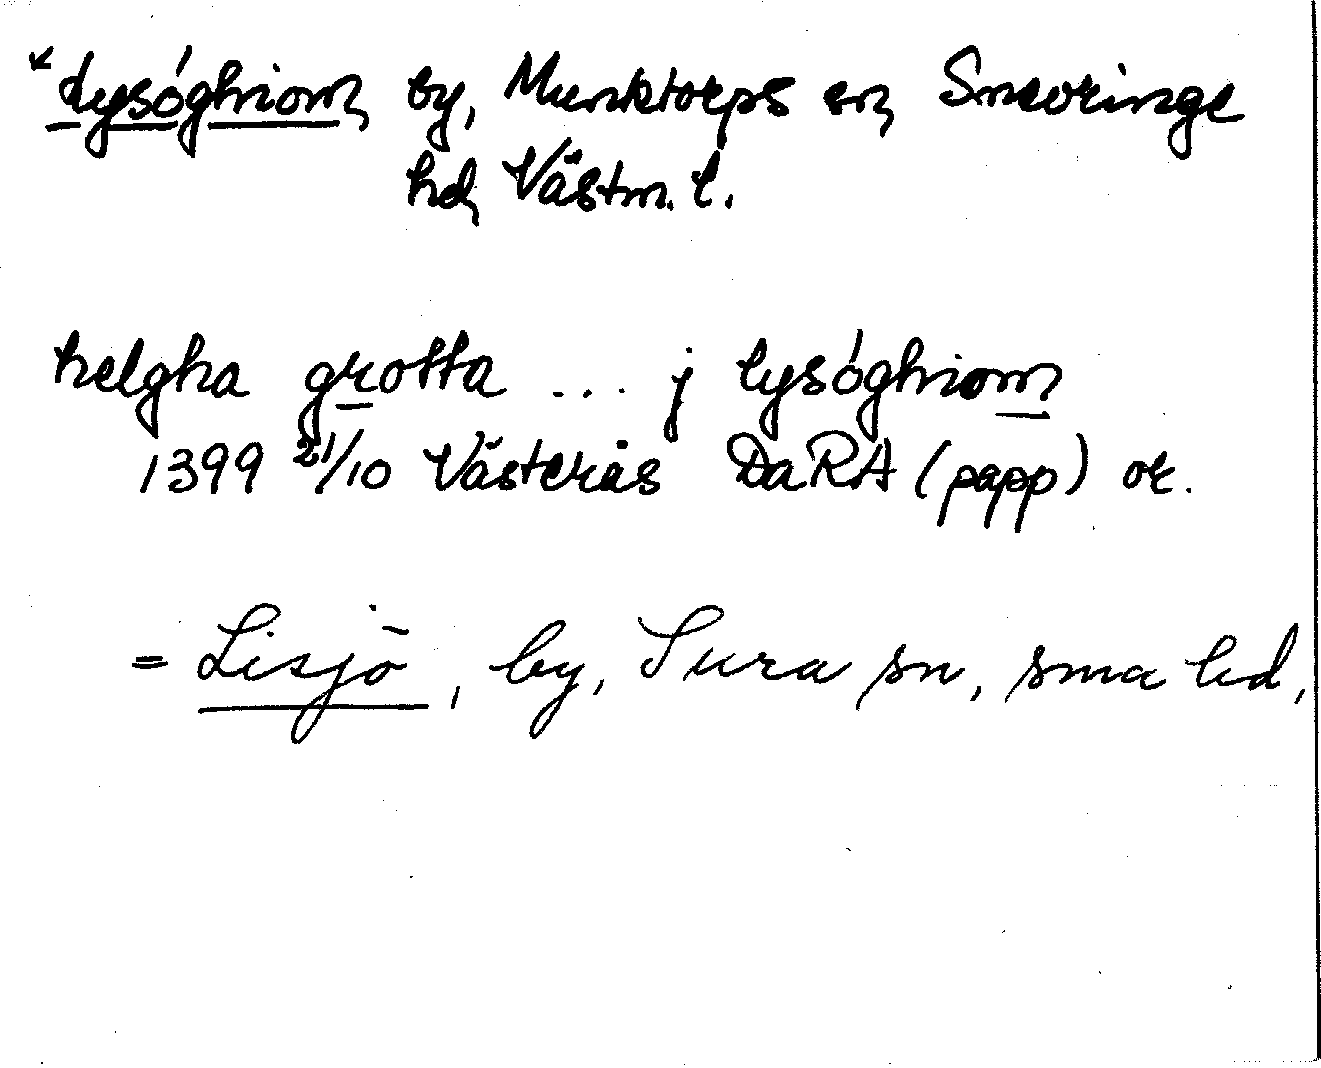 lysóghiom, by, Munktorps sn, Snevringe
hd, Västm. l.
helgha grotta ... j lysóghiom
1399 21/10 Västerås DaRA (papp) or.
= Lisjö, by, Sura sn, sma hd,